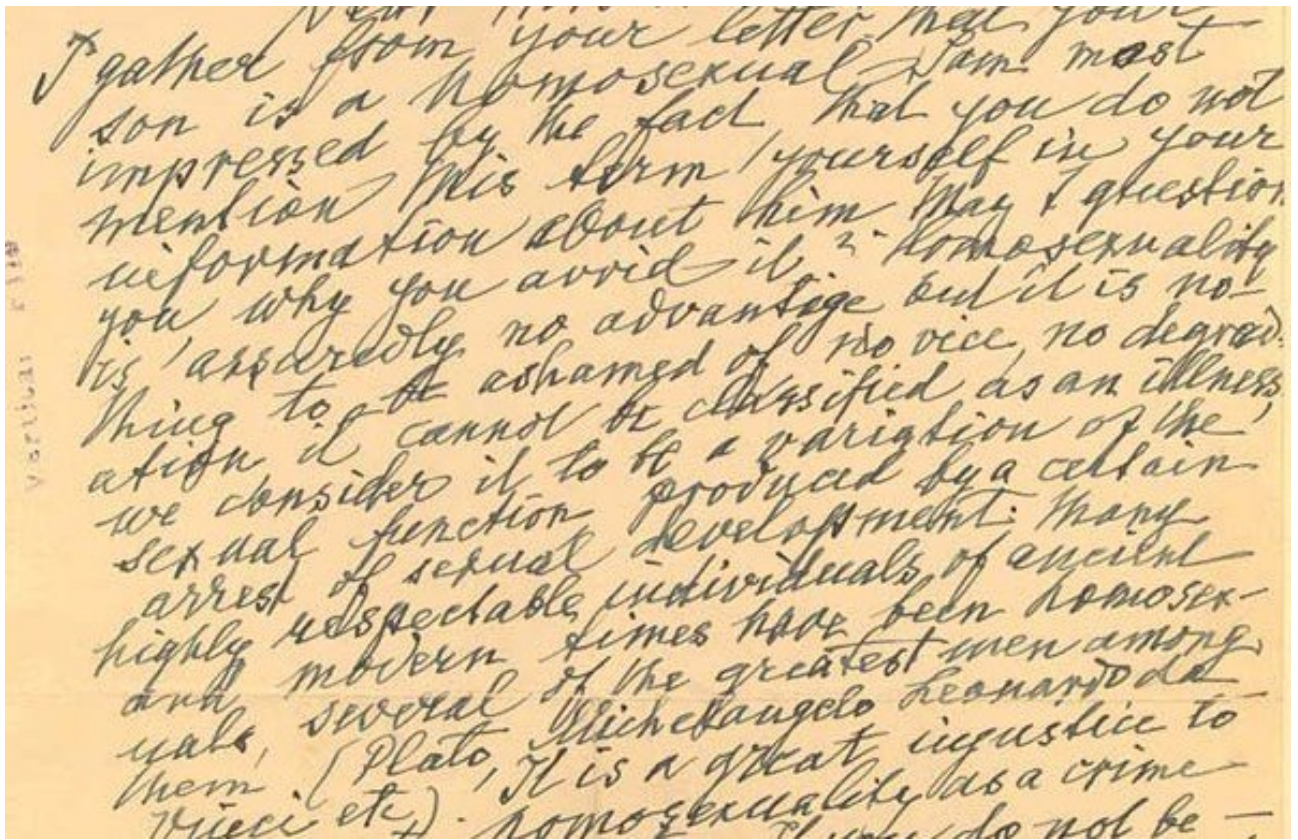 Dear
I gather from your letter that your
son is a homosexual. I am most
impressed by the fact, that you do not
mention this term yourself in your
information about him. May I question
you why you avoid it? Homosexuality
is assuredly no advantage but it is no-
thing to be ashamed of, no vice, no degrad-
ation, it cannot be classified as an illness,
we consider it to be a variation of the
sexual function produced by a certain
arrest of sexual development. Many
highly respectable individuals of ancient
and modern times have been homosex-
uals, several of the greatest men among
them. (Plato, Michelangelo, Leonardo da
Vinci etc). It is a great injustice to
homosexuality as a crime
you do not be-